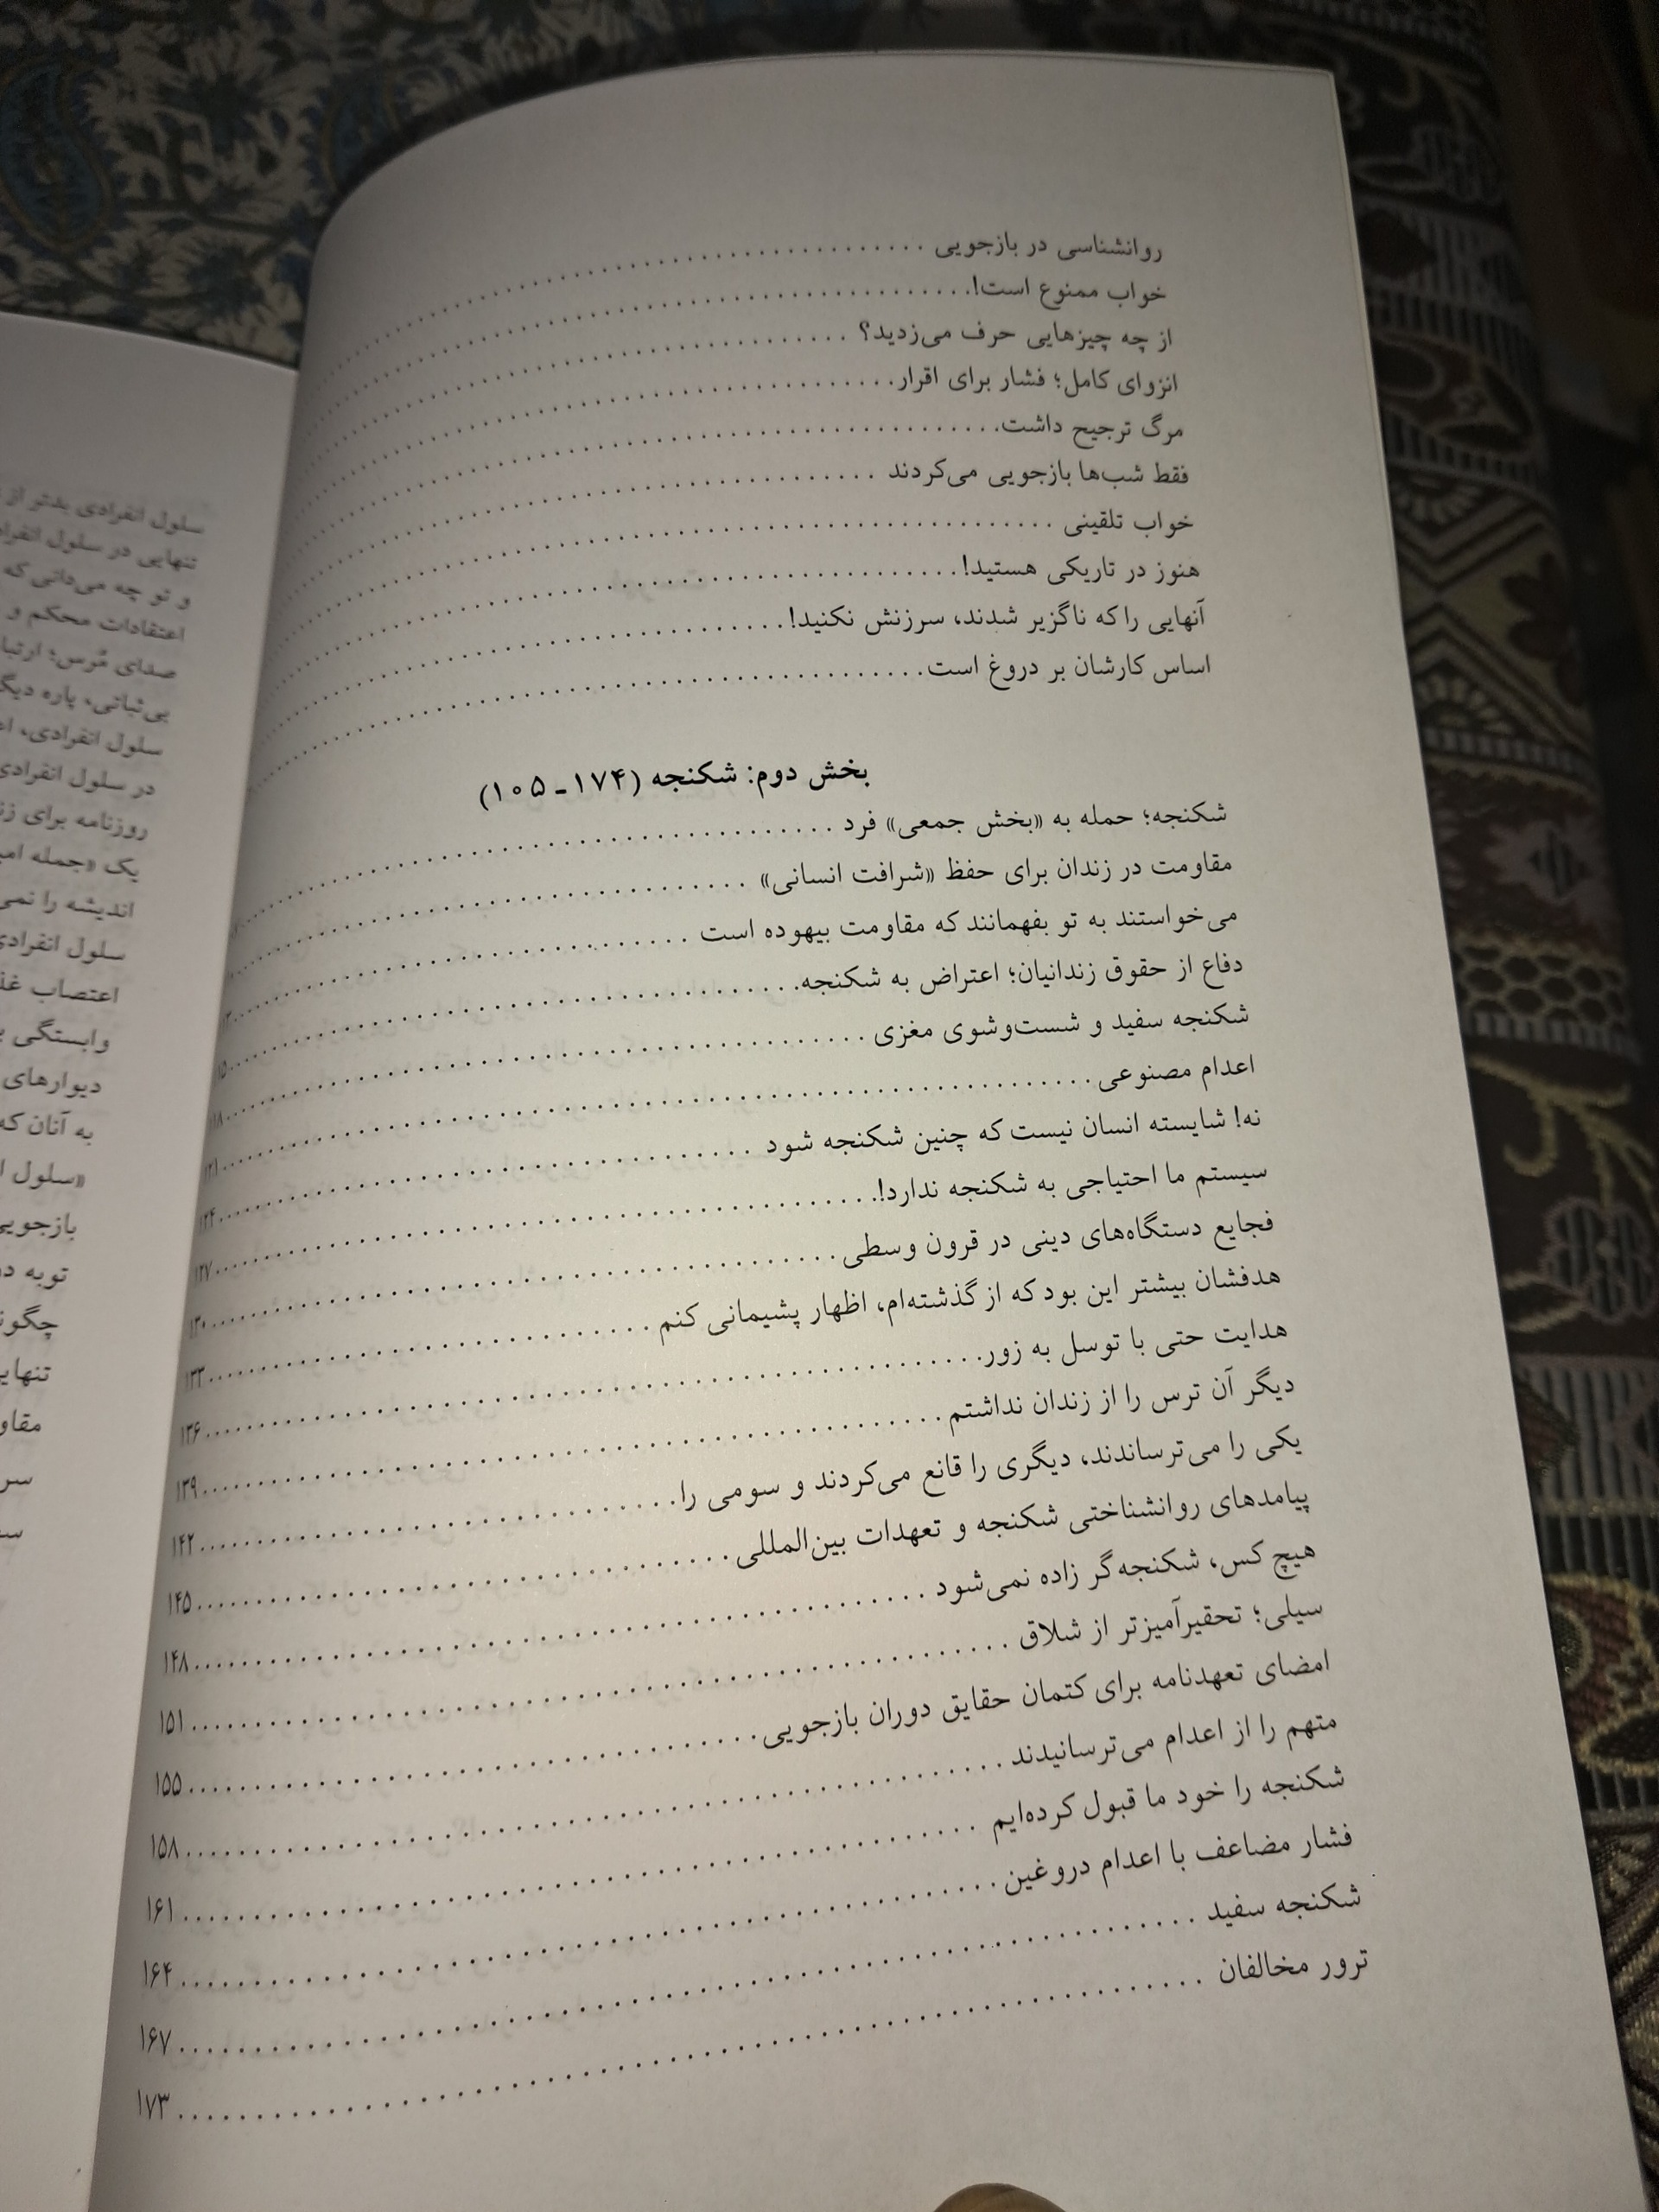 روانشناسی در بازجویی
خواب ممنوع است!
از چه چیزهایی حرف می‌زدید؟
انزوای کامل؛ فشار برای اقرار
مرگ ترجیح داشت
فقط شب‌ها بازجویی می‌کردند
خواب تلقینی
هنوز در تاریکی هستید!
آنهایی را که ناگزیر شدند، سرزنش نکنید!
اساس کارشان بر دروغ است
بخش دوم: شکنجه (۱۷۴ـ۱۰۵)
شکنجه؛ حمله به «بخش جمعی» فرد
مقاومت در زندان برای حفظ «شرافت انسانی»
می‌خواستند به تو بفهمانند که مقاومت بیهوده است
دفاع از حقوق زندانیان؛ اعتراض به شکنجه
شکنجه سفید و شست‌وشوی مغزی ۱۱۸
اعدام مصنوعی ۱۲۱
نه! شایسته انسان نیست که چنین شکنجه شود ۱۲۴
سیستم ما احتیاجی به شکنجه ندارد! ۱۲۷
فجایع دستگاه‌های دینی در قرون وسطی ۱۳۰
هدفشان بیشتر این بود که از گذشته‌ام، اظهار پشیمانی کنم ۱۳۳
هدایت حتی با توسل به زور ۱۳۶
دیگر آن ترس را از زندان نداشتم ۱۳۹
یکی را می‌ترساندند، دیگری را قانع می‌کردند و سومی را ۱۴۲
پیامدهای روانشناختی شکنجه و تعهدات بین‌المللی ۱۴۵
هیچ کس، شکنجه‌گر زاده نمی‌شود ۱۴۸
سیلی؛ تحقیرآمیزتر از شلاق ۱۵۱
امضای تعهدنامه برای کتمان حقایق دوران بازجویی ۱۵۵
متهم را از اعدام می‌ترسانیدند ۱۵۸
شکنجه را خود ما قبول کرده‌ایم ۱۶۱
فشار مضاعف با اعدام دروغین ۱۶۴
شکنجه سفید ۱۶۷
ترور مخالفان ۱۷۳
سلول انفرادی بدتر از
تنهایی در سلول
و تو چه می‌دانی که
اعتقادات محکم و
صدای مُرس؛
بی‌ثباتی، پاره
سلول انفرادی،
در سلول انفرادی
روزنامه برای
یک «جمله
اندیشه را
سلول انفرادی
اعتصاب
وابستگی
دیوارهای
به آنان که
«سلول
بازجویی
توبه